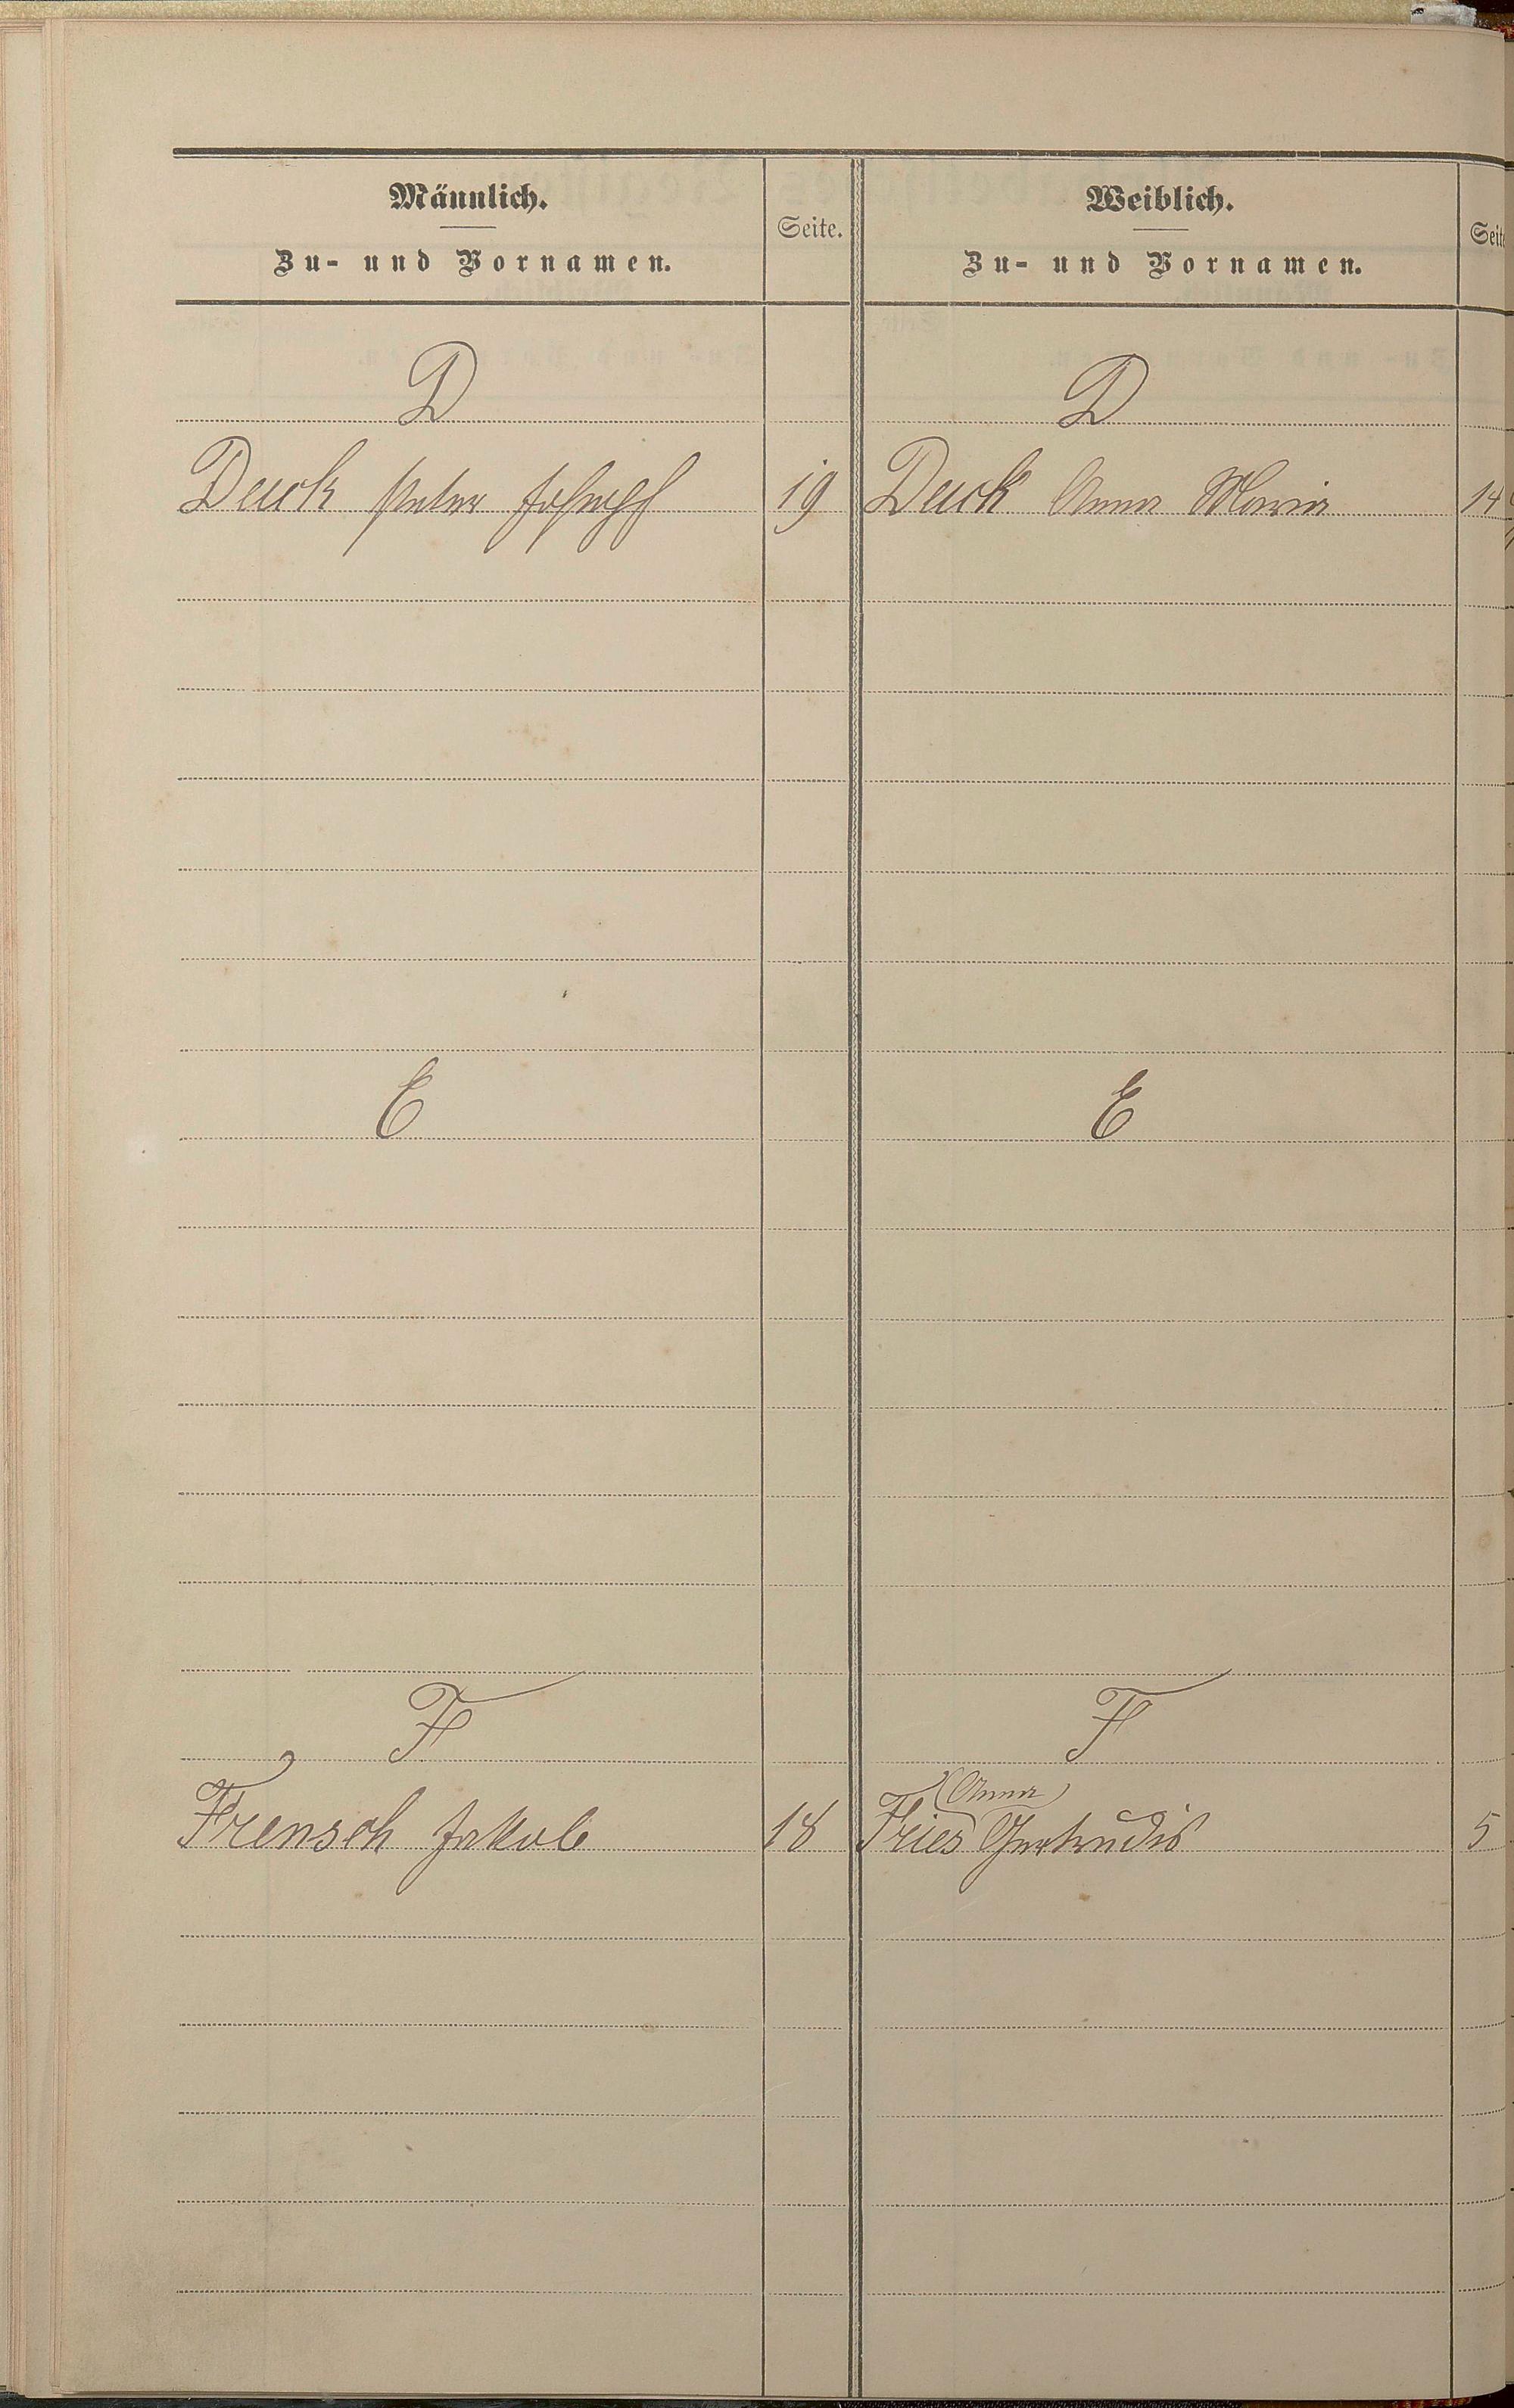 Männlich.
Zu- und Vornamen.
Seite.
Weiblich.
Zu- und Vornamen.
Seite
D
D
Duck Peter Joseph 19 Duck Anna Maria 14
E
E
F
F
(Anna)
Frensch Jakob 18 Fries Gertrudis 5